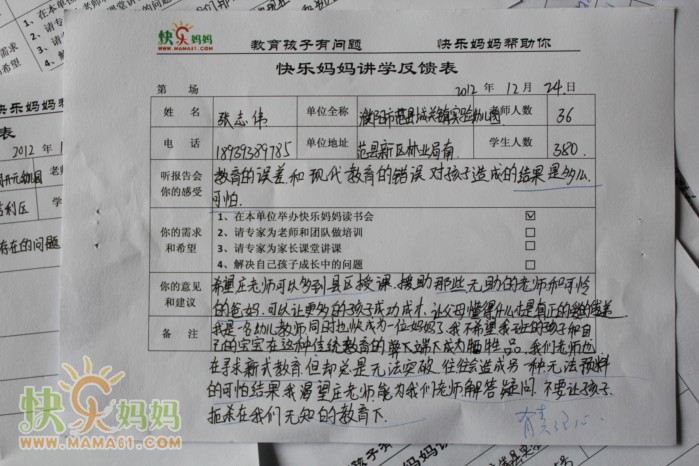 快乐妈妈
WWW.MAMA81.COM
教育孩子有问题 快乐妈妈帮助你
快乐妈妈讲学反馈表
第 场 2012 年 12 月 24 日
姓 名 张志伟 单位全称 濮阳市范县城关镇实验幼儿园 老师人数 36
电 话 18939389785 单位地址 范县新区林业局南 学生人数 380
听报告会
你的感受
教育的误差和现代教育的错误对孩子造成的结果是多么
可怕.
你的需求
和希望
1、在本单位举办快乐妈妈读书会
2、请专家为老师和团队做培训
3、请专家为家长课堂讲课
4、解决自己孩子成长中的问题
你的意见
和建议
希望庄老师可以多到县区授课.援助那些无助的老师和可怜
的爸妈.可以让更多的孩子成功成才.让父母懂得什么才是真正的爱
备 注
我是一名幼儿教师同时也快成为一位妈妈了.我不希望我班的孩子和自
己的宝宝在这种传统教育的弊下成为牺牲品.我们老师也
在寻求新式教育但却总是无法突破.往往会造成另一种无法预料
的可怕结果.我渴望庄老师能为我们老师解答疑问.不要让孩子
扼杀在我们无知的教育下.
快乐妈妈
WWW.MAMA81.COM
快乐妈妈帮
表
2012 年 1
开元幼儿园
利区
存在的问题
1、在本
2、请专
3、请
4、
需求
希望